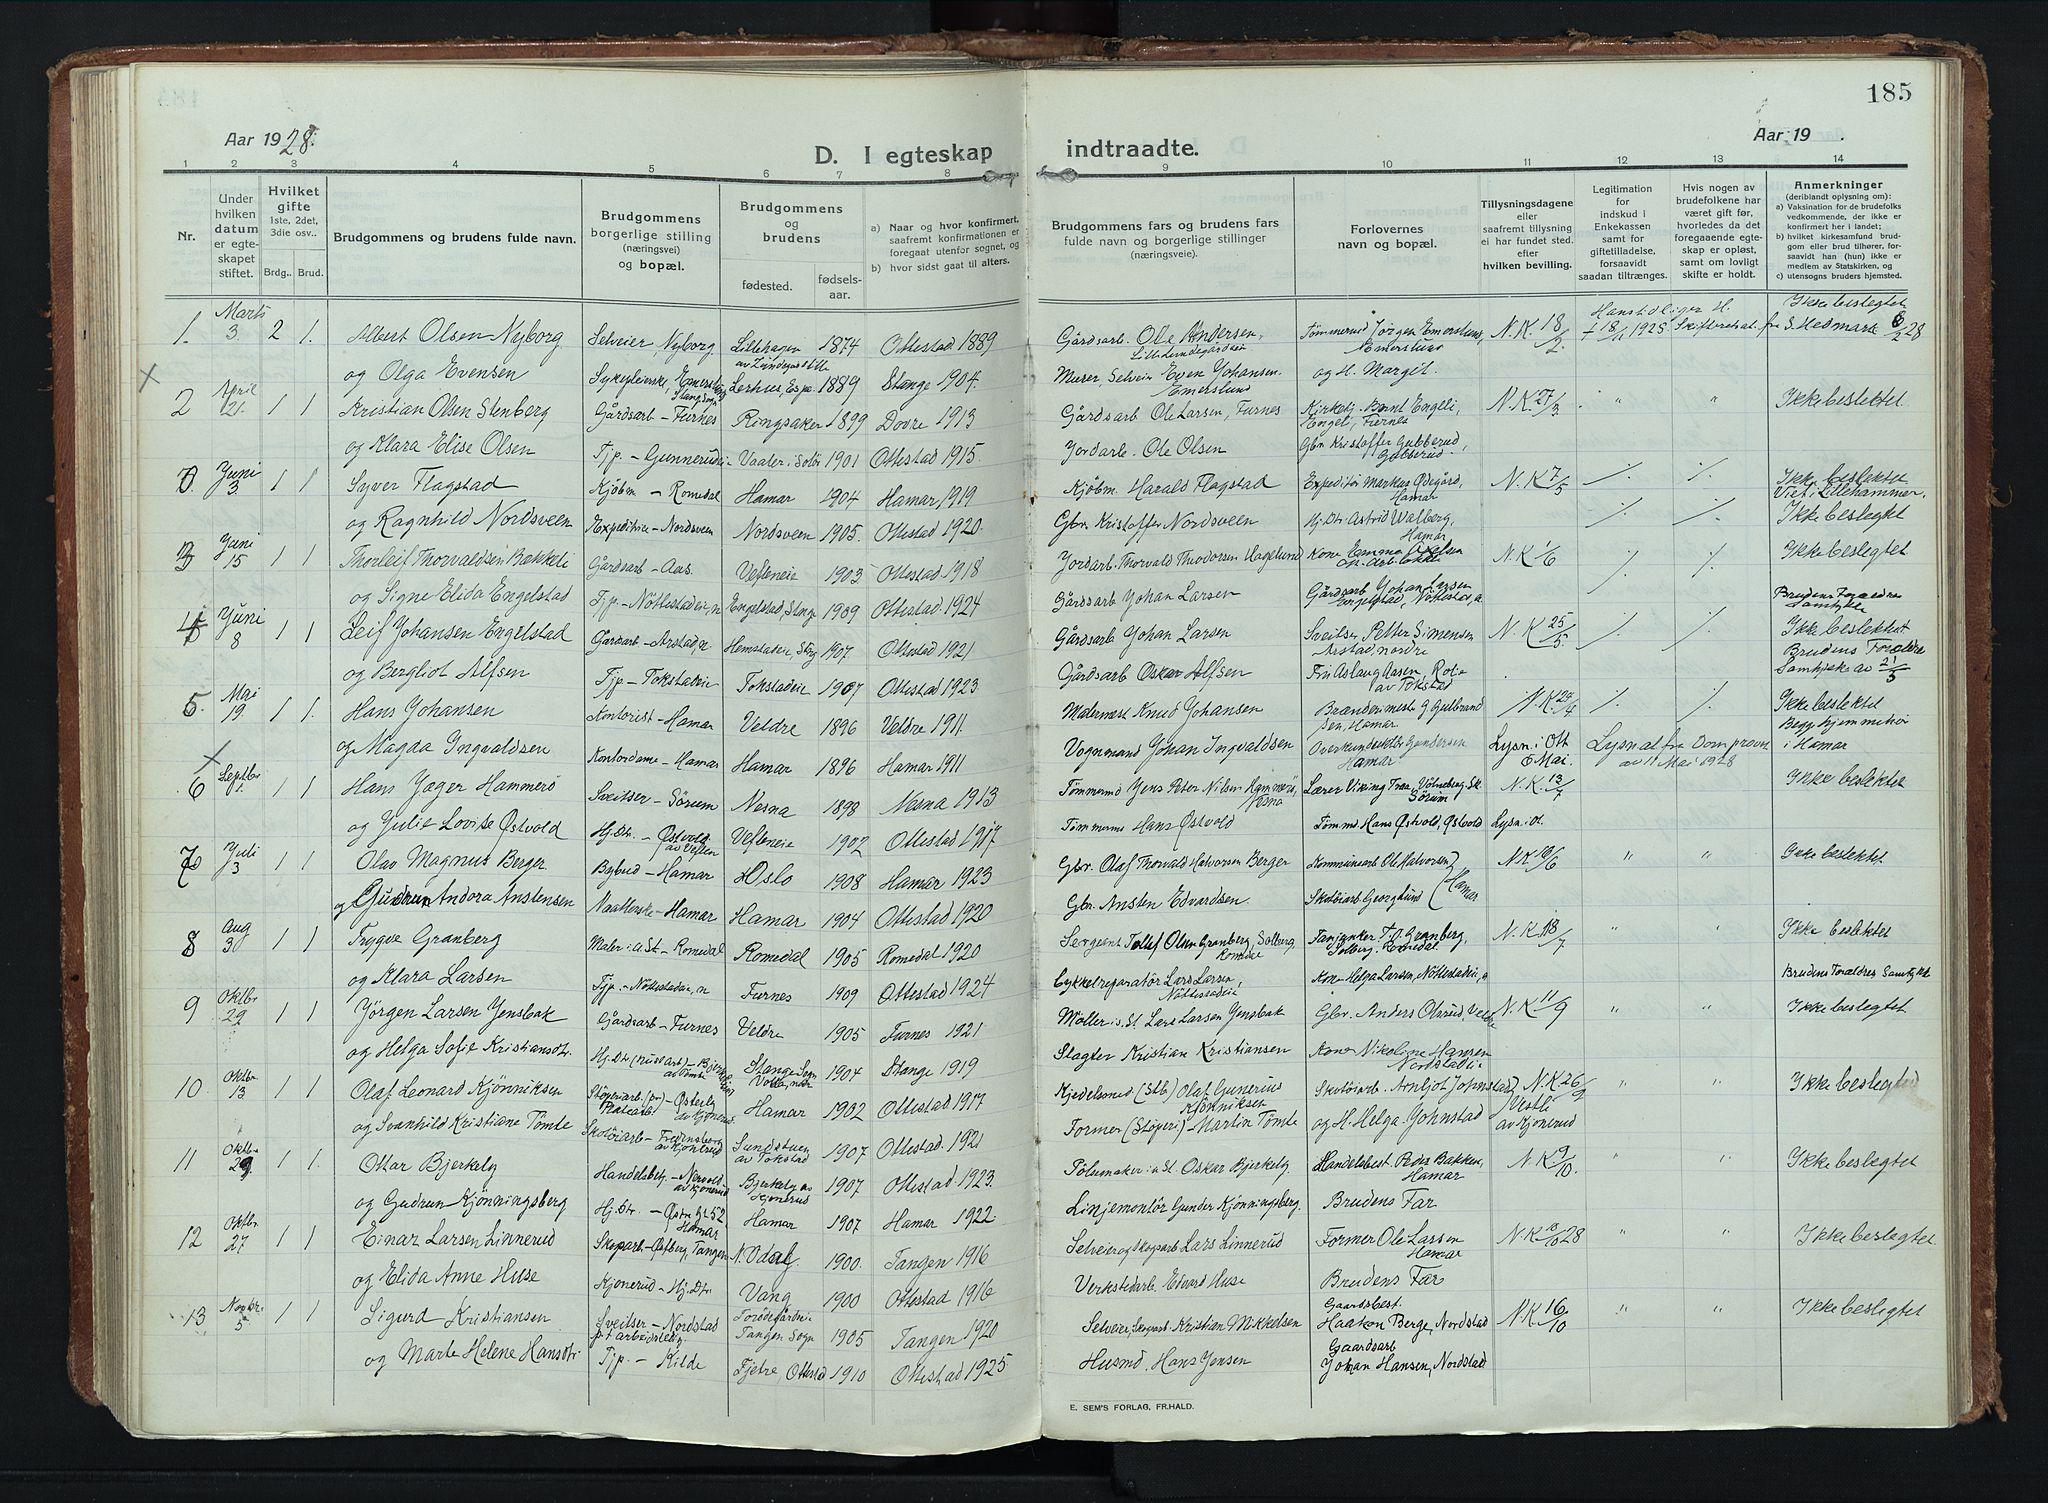 185
Aar 1928. D. I egteskap indtraadte. Aar 19 .
1 2 3 4 5 6 7 8 9 10 11 12 13 14
Nr.
Under hvilken datum er egteskapet stiftet.
Hvilket gifte 1ste, 2det, 3die osv..
Brdg.. Brud.
Brudgommens og brudens fulde navn.
Brudgommens borgerlige stilling (næringsvei) og bopæl.
Brudgommens og brudens
fødested. fødselsaar.
a) Naar og hvor konfirmert, saafremt konfirmationen er foregaat utenfor sognet, og
b) hvor sidst gaat til alters.
Brudgommens fars og brudens fars fulde navn og borgerlige stillinger (næringsveie).
Forlovernes navn og bopæl.
Tillysningsdagene eller saafremt tillysning ei har fundet sted. efter hvilken bevilling.
Legitimation for indskud i Enkekassen samt for giftetilladelse, forsaavidt saadan tiltrænges.
Hvis nogen av brudefolkene har været gift før, hvorledes da det foregaaende egteskap er opløst, samt om lovligt skifte er holdt.
Anmerkninger (deriblandt oplysning om):
a) Vaksination for de brudefolks vedkommende, der ikke er konfirmert her i landet;
b) hvilket kirkesamfund brudgom eller brud tilhører, forsaavidt han (hun) ikke er medlem av Statskirken, og
c) utensogns bruders hjemsted.
1. Marts 3 2 1. Albert Olsen Nyborg Selveier, Nyborg Lillehagen 1874 Ottestad 1889 Gårdsarb. Ole Andersen, Tømmermd Jørgen Emerslund, Emerslund N.K. 18/2. † 18/11 1925 Skifteretsat. fra S. Hedmark 6/2 28 Ikke beslegtet
og Olga Evensen 1889 Stange 1904. Murer, Selveier Even Johansen Emerslund og H. Margit.
2 April 21. 1 1 Kristian Olsen Stenberg Gårdsarb - Furnes Ringsaker 1899 Dovre 1913 Gårdsarb Ole Larsen, Furnes Kirketj. Bernt Engeli, Engel, Furnes N.K. 27/3 " " Ikke beslektet
og Klara Elise Olsen Tjp - Gunnerudei Vaaler i Solør 1901 Ottestad 1915. Jordarb. Ole Olsen Gbr. Kristoffer Gubberud, Gubberud.
Juni 3. 1 1 Syver Flagstad Kjøbm - Romedal Hamar 1904 Hamar 1919 Kjøbm. Harald Flagstad Expeditør Markus Ødegård, Hamar N.K. 7/5 Ikke beslektet Viet i Lillehammer.
og Ragnhild Nordsveen Expeditrice - Nordsveen Nordsveen 1905. Ottestad 1920. Gbr. Kristoffer Nordsveen Hj.Dtr. Astrid Walberg, Hamar Ikke beslegtet
3 Juni 15 1 1 Thorleif Thorvaldsen Bækkeli Gårdsarb - Aas. Vefleneie 1903 Ottestad 1918 Jordarb. Thorvald Theodorsen Hagelund Kone Emma Axelsen N.K. 1/6 Ikke beslegtet
og Signe Elida Engelstad Tjp. - Nöttestadeie, n Engelstad, Stange 1909 Ottestad. 1924 Gårdsarb Johan Larsen Gårdsarb Johan Larsen Engelstad, Nöttestad, n. Brudens Forældres Samtykke
4 Juni 8 1 1 Leif Johansen Engelstad Gardsarb - Arstad, n Hemstadeie, Stge 1907 Ottestad. 1921 Gårdsarb Johan Larsen Sveitser Petter Simensen Arstad nordre N.K. 25/5 Ikke beslektet
og Bergliot Alfsen Tjp - Tokstadeie Tokstadeie 1907 Ottestad 1923. Gårdsarb Oskar Alfsen Frk Aslaug Aasen, Rolie av Tokstad Brudens Forældres Samtykke av 21/5
5. Mai 19. 1 1. Hans Johansen Kontorist - Hamar Veldre 1896 Veldre 1911. Malermest Knud Johansen Brandermester G Gulbrandsen, Hamar N.K. 24/4 Ikke beslektet
og Magda Ingvaldsen Kontordame - Hamar Hamar 1896 Hamar 1911 Vognmand Johan Ingvaldsen Overkonduktør Gundersen Hamar Lysn. i Ott. 6 Mai. Lysn. at fra Domprovn av 11 Mai 1928 Begge hjemmehør i Hamar
6 Septbr 1. 1 1 Hans Jager Hammerö Sveitser - Sörum Nesna 1898 Nesna 1913 Tömmermd Jens Peter Nilsen Hammerö, Nesna Lærer Viking Sörum N.K. 13/7 Ikke beslektet
og Julie Lovise Östvold Hj.Dtr. - Östvold av Veflen Vefleneie 1902 Ottestad 1917 Tömmerm Hans Östvold Tömmd Hans Östvold, Östvold Lysn. i O.
7 Juli 3 1 1 Olav Magnus Berger Bybud - Hamar Oslo 1908 Hamar 1923 Gbr. Olaf Thorvald Halvorsen Berger Kommunearb Ole Halvorsen N.K. 16/6 " " Ikke beslektet
og Gudrun Andora Anstensen - Hamar Hamar 1904 Ottestad 1920 Gbr. Ansten Edvardsen. Skotöiarb Georg Lund Hamar
8 Aug 3. 1 1 Trygve Granberg Maler i a St - Romedal Romedal 1905 Romedal 1920 Sergeant Tollef Olsen Granberg, Solberg, Romedal N.K. 18/7 " " Ikke beslektet
og Klara Larsen Tjp. - Nöttestadeie, n Furnes 1909 Ottestad 1924 Cykkelreparatör Lars Larsen, Nöttestadeie Kone Helga Larsen, Nöttestadeie, n Brudens Forældres Samtykke
9 Oktbr 29 1 1 Jörgen Larsen Jensbak Gårdsarb - Furnes Veldre 1905 Furnes 1921 Möller i a St. Lars Larsen Jensbak Gbr. Anders Olsrud, Veldre N.K. 11/9 " " Ikke beslegtet
og Helga Sofie Kristiansdtr. Hj.Dtr. Stange Sogn 1904 Stange 1919 Slagter Kristian Kristiansen Kone Nikoline Hansen Nordstadeie
10 Oktbr 13 1 1 Olaf Leonard Kjönniksen Hamar 1902 Ottestad 1917 Kjedelsmed (Stb) Olaf Gunerius Kjönniksen Skotöiarb. Arnljot Johnstad Vestli av Kjonerud N.K. 26/9 " " Ikke beslegtet
og Svanhild Kristiane Tömte Skotöiarb - Fredensberg av Kjonerud Sundstuen av Tokstad 1907 Ottestad. 1921 Former (Stöperi) - Martin Tömte og H. Helga Johnstad
11 Oktbr 29 1 1. Ottar Bjerkely Handelsbetj - av Kjonerud Bjerkely av Kjonerud 1907 Ottestad 1923. Oskar Bjerkely Handelsbest. Peder Bakken, Hamar N.K. 9/10. " " Ikke beslegtet
og Gudrun Kjönningsberg Hj.Dtr. - Östre Gt 52 Hamar Hamar 1907 Hamar 1922. Linjemontör Gunder Kjönningsberg. Brudens Far
12 Oktbr. 27 1 1 Einar Larsen Linnerud Skoparb - Östberg, Tangen N. Odal 1900. Tangen 1916 Selveier og Skogsarb Lars Linnerud Former Ole Larsen Hamar N.K. 28 " " Ikke beslegtet.
og Elida Anne Huse Kjonerud - Hj.Dtr. Vang 1900 Ottestad 1916 Verkstedarb. Edvard Huse Brudens Far
13 Novbr. 5 1 1 Sigurd Kristiansen Sveitser - Nordstad p.t arbeidsledig Tangen Sogn 1905 Tangen 1920 Selveier, Skogarb. Kristian Mikkelsen Gaardsbest. Haakon Berge, Nordstad N.K. 16/10 " " Ikke beslegtet
og Marte Helene Hansdtr. Tjp. - Kilde Fjetre, Ottestad 1910 Ottestad 1925. Husmd. Hans Jensen Gaardsarb Johan Hansen, Nordstad
E. SEM'S FORLAG, FR.HALD.